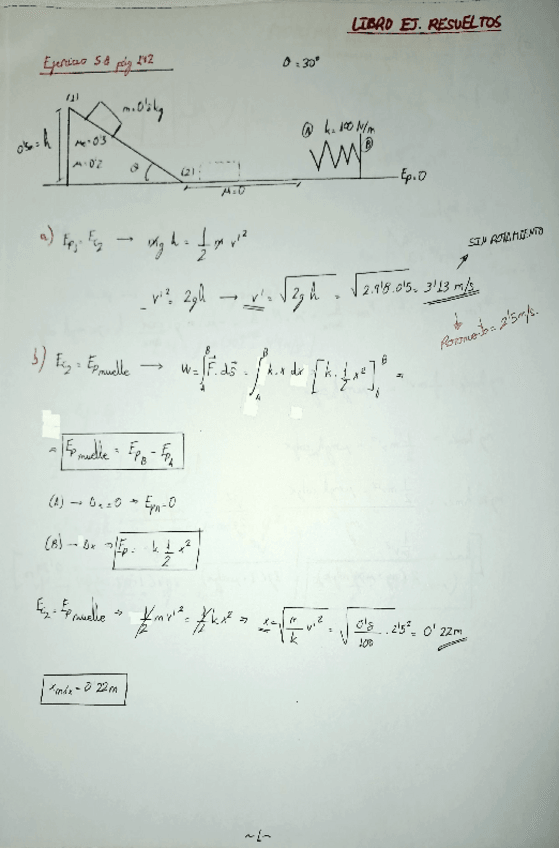 LIBRO EJ. RESUELTOS
Ejercicio 58 pág 212
θ = 30º
(1)
m=0'8 kg
0'50=h
μe=0'3
μ=0'2
θ
(2)
μ=0
(A) k=100 N/m
(B)
Ep=0
a) Ep1 = Ec2 → mgh = 1/2 m v'²
SIN ROZAMIENTO
v'² = 2gh → v' = √2gh = √2·9'8·0'5 = 3'13 m/s
Rozamiento = 2'5 m/s.
b) Ec2 = Ep muelle → W = ∫ F·ds = ∫ k·x dx [k·1/2 x²] =
= Ep muelle = EpB - EpA
(A) → Δx=0 → EpA=0
(B) → Δx → Ep = k 1/2 x²
Ec2 = Ep muelle ⇒ 1/2 mv'² = 1/2 kx² ⇒ x = √m/k v'² = √0'8/100 · 2'5² = 0'22m
xmáx = 0'22m
~1~